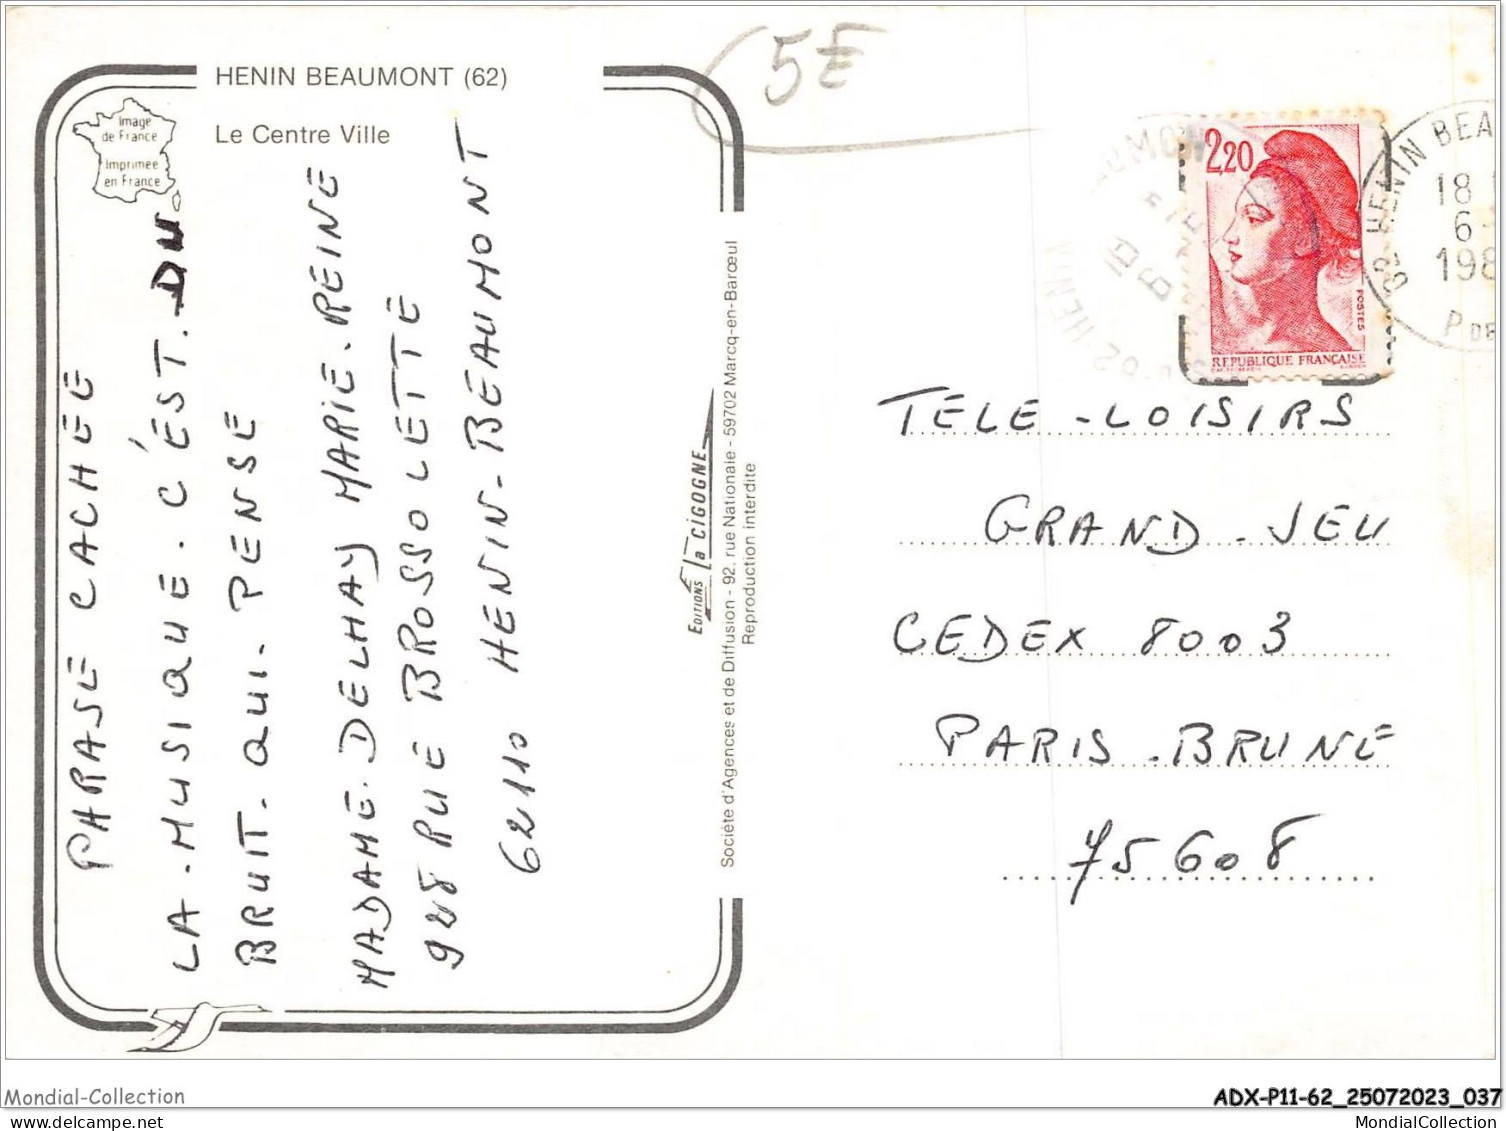 5E
HENIN BEAUMONT (62)
Le Centre Ville
Image
de France
Imprimée
en France
PARASE CACHÉE
LA-MUSIQUE. C'ÉST. DU
BRUIT. QUI. PENSE
MADAME. DELHAY MARIE. REINE
928 RUE BROSSOLETTE
62110 HENIN-BEAUMONT
EDITIONS La CIGOGNE
Société d'Agences et de Diffusion - 92, rue Nationale - 59702 Marcq-en-Barœul
Reproduction interdite
2,20
POSTES
REPUBLIQUE FRANÇAISE
62 HENIN BEA
18
6
198
P DE
TELE-LOISIRS
GRAND-JEU
CEDEX 8003
PARIS-BRUNE
75608
Mondial-Collection
ADX-P11-62_25072023_037
MondialCollection